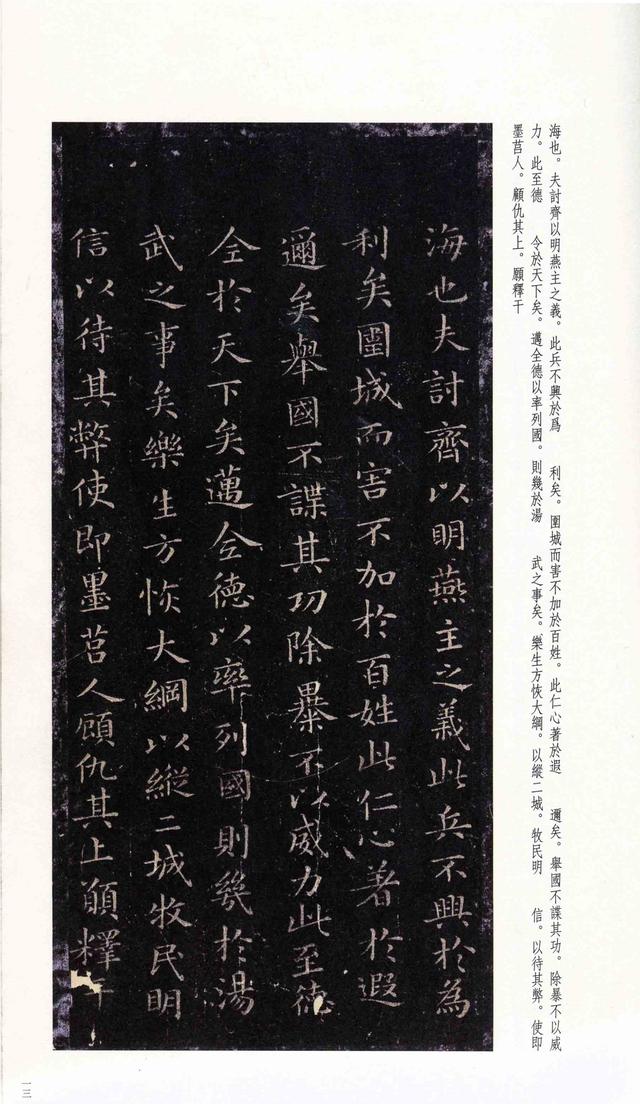 海也。夫討齊以明燕主之義。此兵不興於爲 利矣。圍城而害不加於百姓。此仁心著於遐 邇矣。舉國不諜其功。除暴不以威
力。此至德 令於天下矣。邁全德以率列國。則幾於湯 武之事矣。樂生方恢大綱。以縱二城。牧民明 信。以待其弊。使即
墨莒人。顧仇其上。願釋干
海也夫討齊以明燕主之義此兵不興於為
利矣圍城而害不加於百姓此仁心著於遐
邇矣舉國不諜其功除暴不以威力此至德
全於天下矣邁全德以率列國則幾於湯
武之事矣樂生方恢大綱以縱二城牧民明
信以待其弊使即墨莒人顧仇其上願釋干
一三